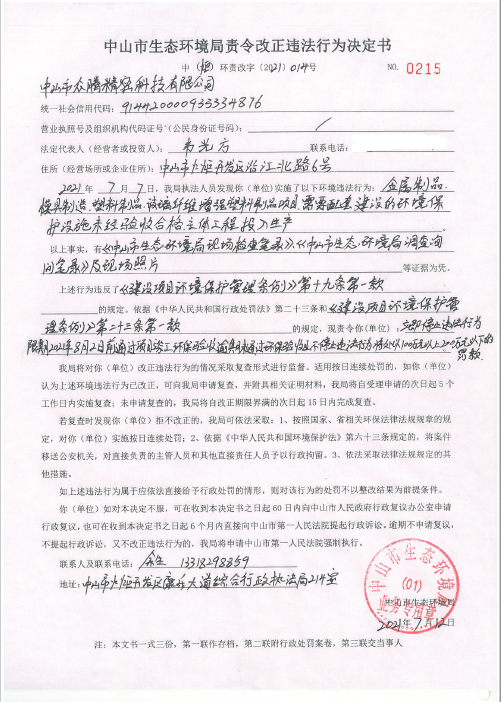 中山市生态环境局责令改正违法行为决定书
中（炬）环责改字〔2021〕014号 NO. 0215
中山市众腾精密科技有限公司
统一社会信用代码：914420000933334876
营业执照号及组织机构代码证号（公民身份证号码）： /
法定代表人（经营者或投资人）：韦光方 联系电话：
住所（经营场所或企业住所）：中山市火炬开发区沿江北路6号
2021年7月7日，我局执法人员发现你（单位）实施了以下环境违法行为：金属制品、
模具制造、塑料制品、玻璃纤维增强塑料制品项目，需要配套建设的环境保
护设施未经验收合格，主体工程投入生产
以上事实，有《中山市生态环境局现场检查笔录》《中山市生态环境局调查询
问笔录》及现场照片 等证据为凭。
上述行为违反了《建设项目环境保护管理条例》第十九条第一款
的规定。依据《中华人民共和国行政处罚法》第二十三条和《建设项目环境保护管
理条例》第二十三条第一款 的规定，现责令你（单位）立即停止违法行为
限期2021年8月2日前通过项目竣工环保验收，逾期未通过环保验收且不停止违法行为将处以100万元以上200万元以下的
罚款
我局将对你（单位）改正违法行为的情况采取复查形式进行监督。适用按日连续处罚的，如你（单位）
认为上述环境违法行为已改正，可向我局申请复查，并附具相关证明材料，我局将自受理申请的次日起5个
工作日内实施复查；未申请复查的，我局将自改正期限界满的次日起15日内完成复查。
若复查时发现你（单位）拒不改正的，我局可依法采取：1、按照国家、省相关环保法律法规规章的规
定，对你（单位）实施按日连续处罚；2、依据《中华人民共和国环境保护法》第六十三条规定的，将案件
移送公安机关，对直接负责的主管人员和其他直接责任人员予以行政拘留。3、依法采取法律法规规定的其
他措施。
如上述违法行为属于应依法直接给予行政处罚的情形，则对该行为的处罚不以整改结果为前提条件。
你（单位）如对本决定不服，可在收到本决定书之日起60日内向中山市人民政府行政复议办公室申请
行政复议，也可在收到本决定书之日起6个月内直接向中山市第一人民法院提起行政诉讼。逾期不申请复议，
不提起行政诉讼，又不改正违法行为的，我局将申请中山市第一人民法院强制执行。
联系人及联系电话：余生 13318298859
地址：中山市火炬开发区康乐大道综合行政执法局214室
中山市生态环境局
(01)
中山市生态环境局
2021年7月12日
注：本文书一式三份，第一联作存档，第二联附行政处罚案卷，第三联交当事人